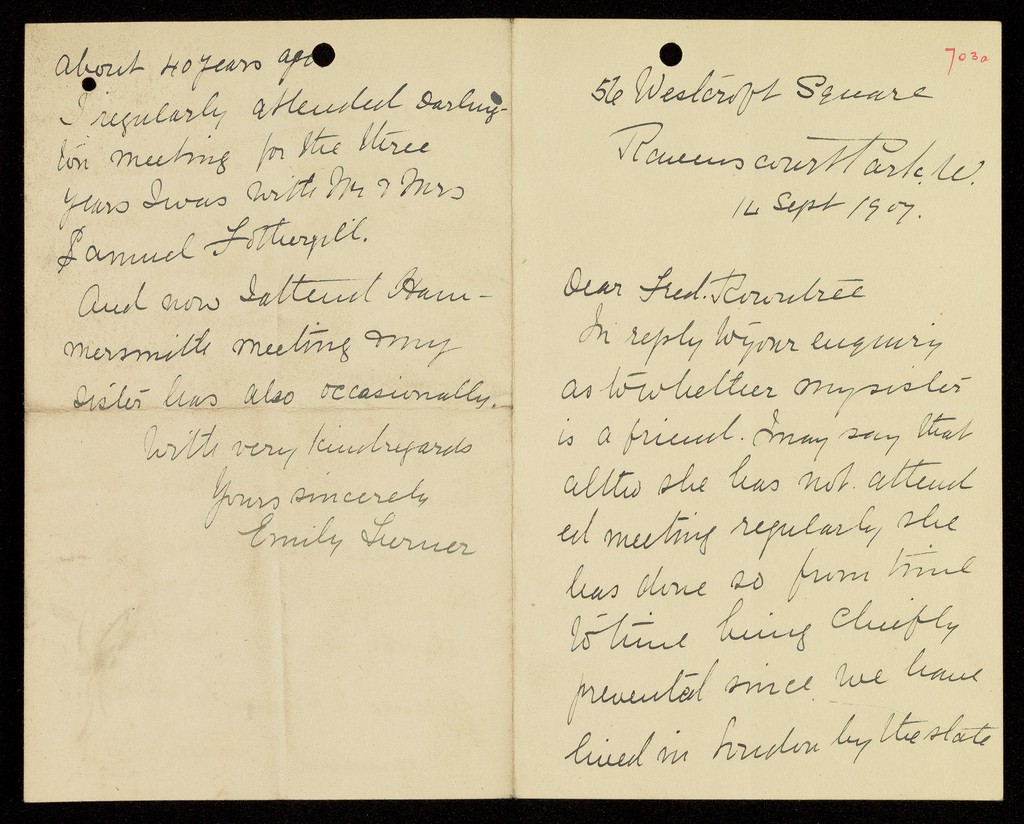 703a
56 Westcroft Square
Ravenscourt Park. W.
14 Sept 1907.
Dear Fred. Rowntree
In reply to your enquiry
as to whether my sister
is a friend. I may say that
altho she has not attend
ed meeting regularly she
has done so from time
to time being chiefly
prevented since we have
lived in London by the state
about 40 years ago
I regularly attended Darling-
ton meeting for the three
years I was with Mr & Mrs
Samuel Fothergill.
And now I attend Ham-
mersmith meeting & my
sister has also occasionally.
With very kind regards
Yours sincerely
Emily Turner